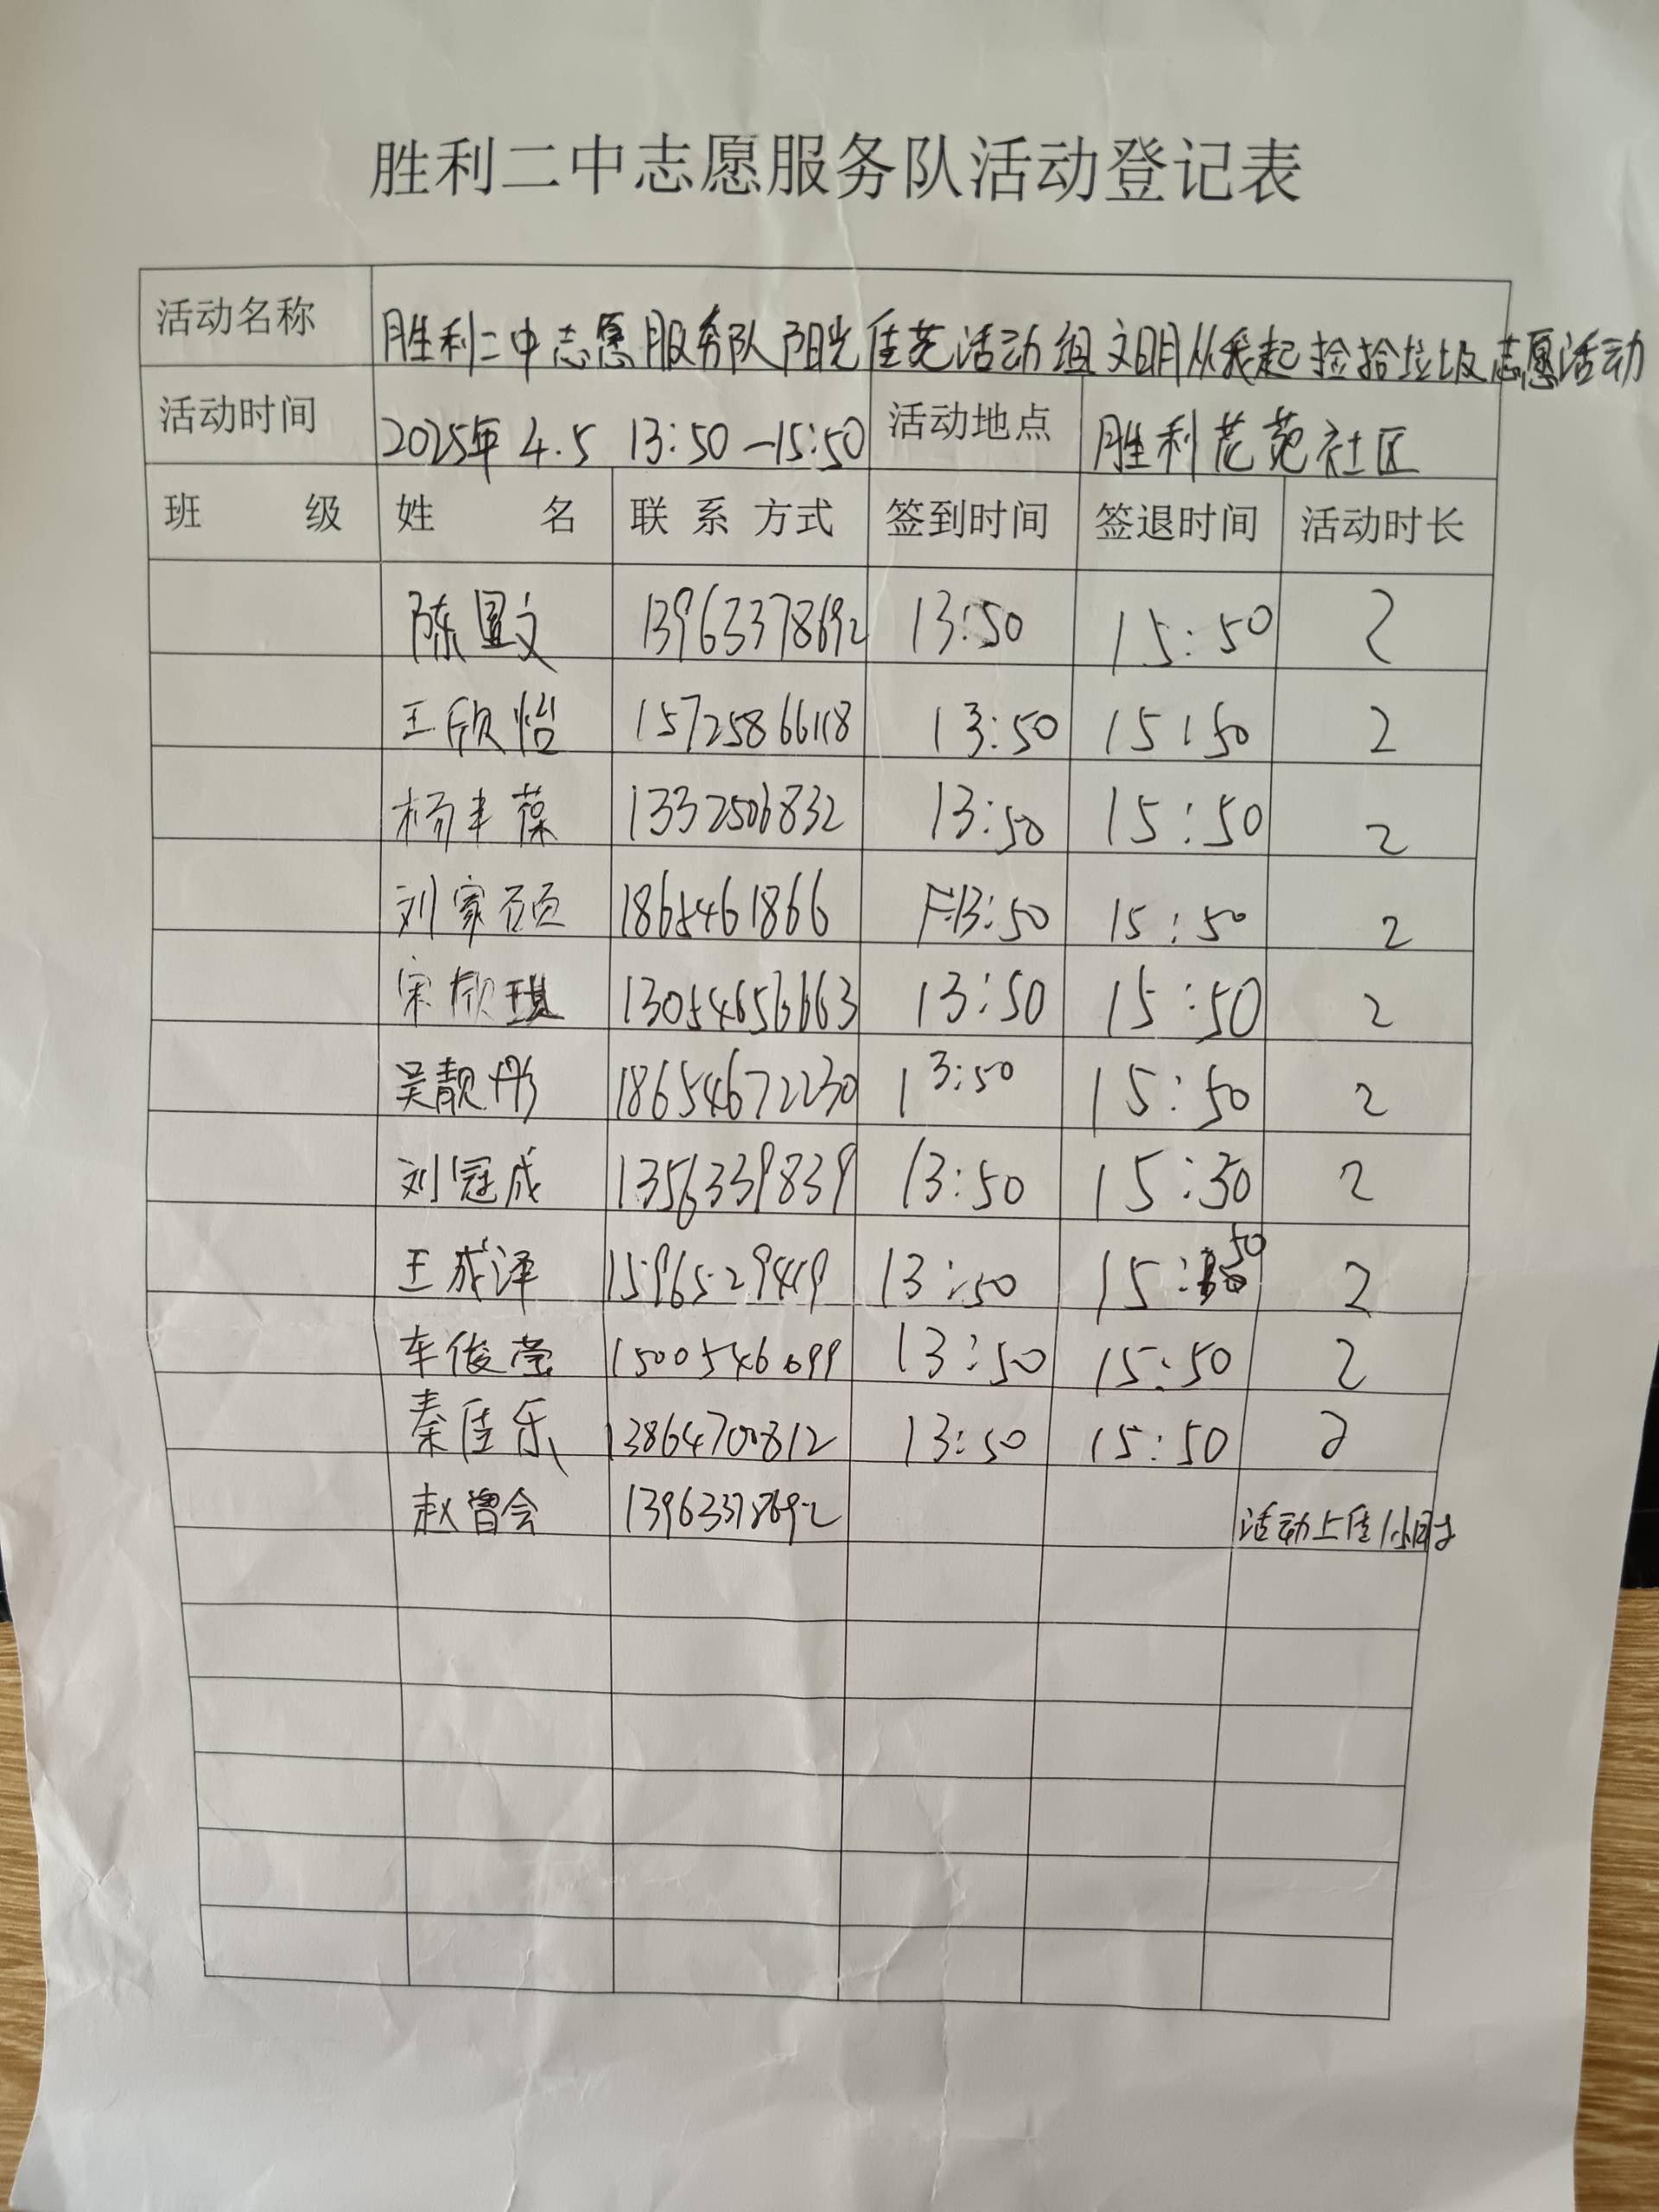 胜利二中志愿服务队活动登记表
活动名称 胜利二中志愿服务队阳光佳苑活动组文明从我起捡拾垃圾志愿活动
活动时间 2025年4.5 13:50-15:50 活动地点 胜利花苑社区
班 级 姓 名 联系方式 签到时间 签退时间 活动时长
陈 文 13963378692 13:50 15:50 2
王欣怡 15725866118 13:50 15:50 2
杨丰葆 1332506832 13:50 15:50 2
刘家硕 1865461866 13:50 15:50 2
宋欣琪 13054656663 13:50 15:50 2
吴靓彤 18654672230 13:50 15:50 2
刘冠成 1356339839 13:50 15:30 2
王成泽 15965294419 13:50 15:50 2
车俊莹 15005466099 13:50 15:50 2
秦佳乐 13864700812 13:50 15:50 2
赵曾会 13963378692 活动上传1小时